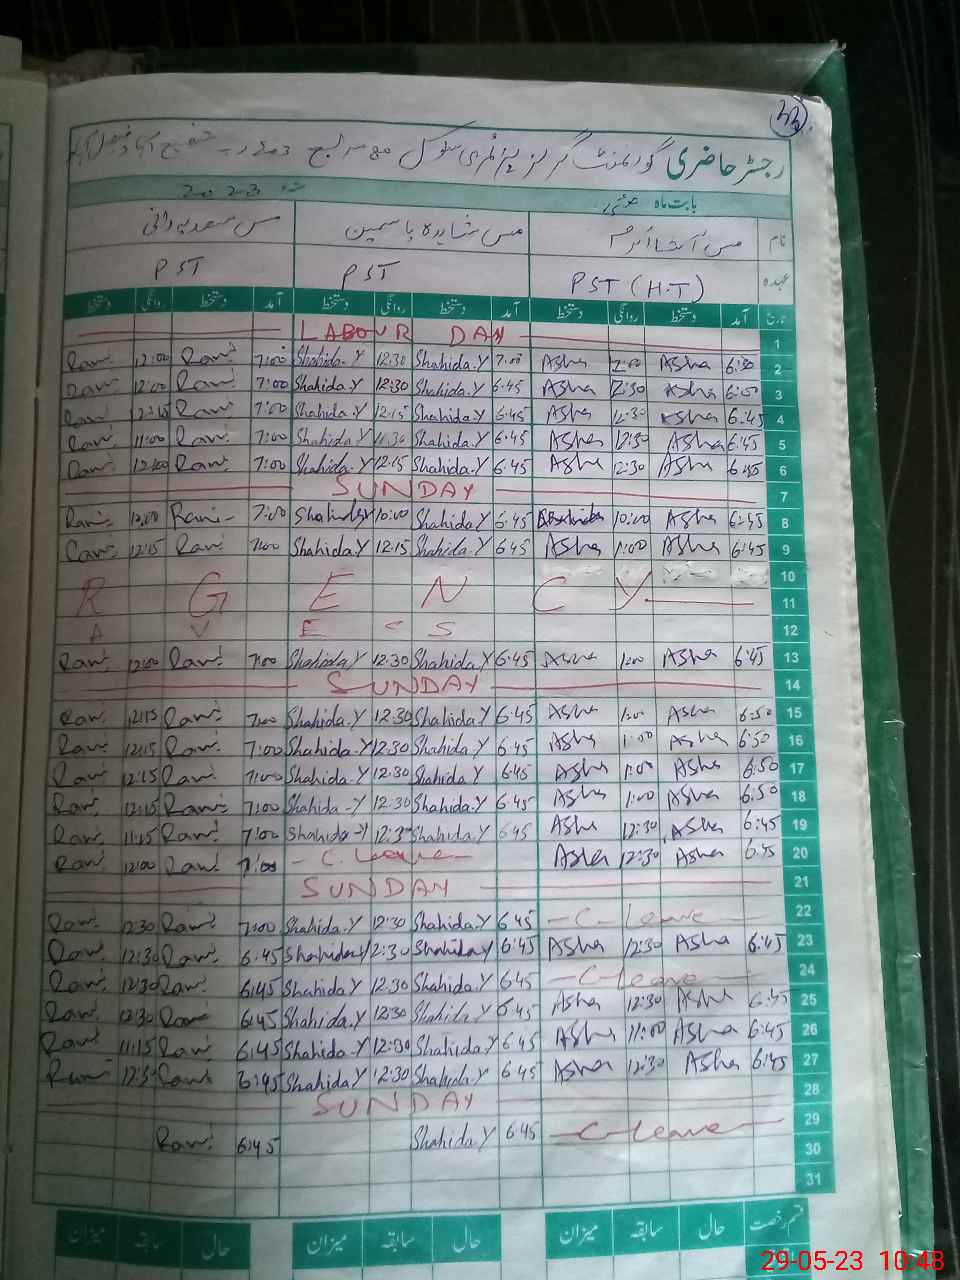 رجسٹر حاضری گورنمنٹ گرلز پرائمری سکول
بابت ماہ مئی 2023
نام مس شاہدہ یاسمین مس سعدیہ رانی
عہدہ PST (H.T) PST PST
تاریخ آمد دستخط روانگی دستخط آمد دستخط روانگی دستخط آمد دستخط روانگی دستخط
LABOUR DAY 1
Rani 12:00 Rani 7:00 Shahida.Y 12:30 Shahida.Y 7:00 Asha Asha 6:50 2
Rani 12:00 Rani 7:00 Shahida.Y 12:30 Shahida.Y 6:45 Asha 12:30 Asha 6:50 3
Rani 12:15 Rani 7:00 Shahida.Y 12.15 Shahida.Y 6.45 Asha 12:30 Asha 6:45 4
Rani 11:00 Rani 7:00 Shahida.Y 11.30 Shahida.Y 6.45 Asha 12:30 Asha 6:45 5
Rani 12:00 Rani 7:00 Shahida.Y 12.15 Shahida.Y 6.45 Asha 12:30 Asha 6:45 6
SUNDAY 7
Rani 12:00 Rani 7:00 Shahida.Y 10:00 Shahida.Y 6.45 10:00 Asha 6:45 8
Rani 12:15 Rani 7:00 Shahida.Y 12.15 Shahida.Y 6.45 Asha 1:00 Asha 6:45 9
10
R G E N C Y 11
12
Rani 12:00 Rani 7:00 Shahida.Y 12.30 Shahida.Y 6.45 Asha 1:00 Asha 6:45 13
SUNDAY 14
Rani 12:15 Rani 7:00 Shahida.Y 12.30 Shahida.Y 6.45 Asha 1:00 Asha 6:50 15
Rani 12:15 Rani 7:00 Shahida.Y 12.30 Shahida.Y 6.45 Asha 1:00 Asha 6:50 16
Rani 12:15 Rani 7:00 Shahida.Y 12.30 Shahida.Y 6.45 Asha 1:00 Asha 6:50 17
Rani 12:15 Rani 7:00 Shahida.Y 12.30 Shahida.Y 6.45 Asha 1:00 Asha 6:50 18
Rani 11:15 Rani 7:00 Shahida.Y 12.30 Shahida.Y 6.45 Asha 12:30 Asha 6:45 19
Rani 12:00 Rani 7:00 C. Leave Asha 12:30 Asha 6:45 20
SUNDAY 21
Rani 12:30 Rani 7:00 Shahida.Y 12.30 Shahida.Y 6.45 C. Leave 22
Rani 12:30 Rani 6:45 Shahida.Y 12.30 Shahida.Y 6.45 Asha 12:30 Asha 6:45 23
Rani 12:30 Rani 6:45 Shahida.Y 12.30 Shahida.Y 6.45 C-Leave 24
Rani 12:30 Rani 6:45 Shahida.Y 12.30 Shahida.Y 6.45 Asha 12:30 Asha 6:45 25
Rani 11:15 Rani 6:45 Shahida.Y 12.30 Shahida.Y 6.45 Asha 11:00 Asha 6:45 26
Rani 12:30 Rani 6:45 Shahida.Y 12.30 Shahida.Y 6.45 Asha 12:30 Asha 6:45 27
SUNDAY 28
Rani 6:45 Shahida.Y 6.45 C-leave 29
30
31
قسم رخصت حال سابقہ میزان حال سابقہ میزان حال سابقہ میزان
29-05-23 10:48